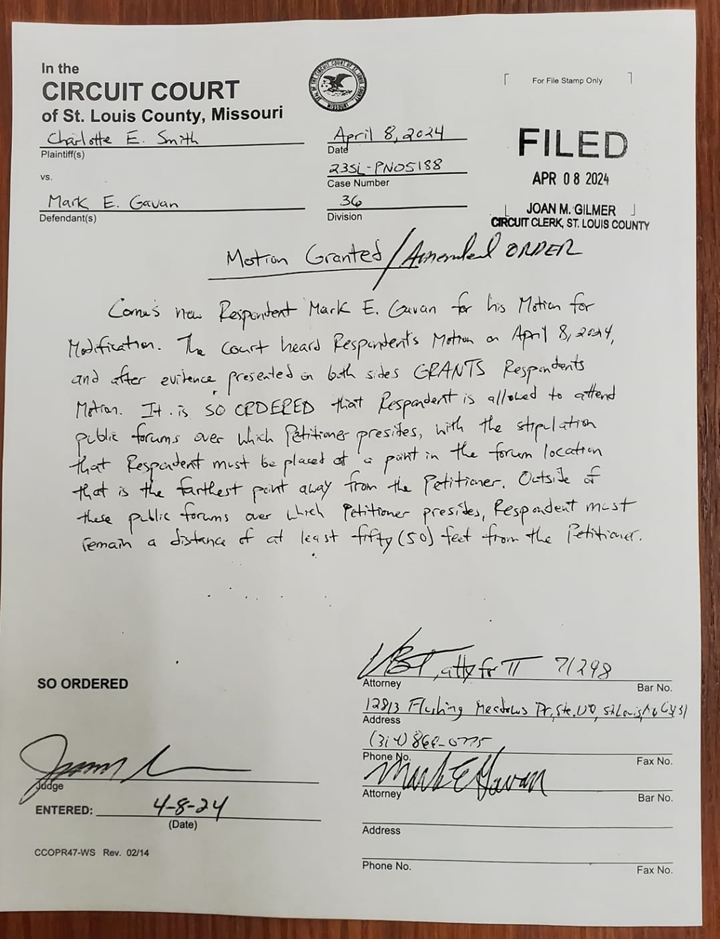 In the
CIRCUIT COURT
of St. Louis County, Missouri
For File Stamp Only
Charlotte E. Smith
Plaintiff(s)
vs.
Mark E. Gavan
Defendant(s)
April 8, 2024
Date
23SL-PN05188
Case Number
36
Division
FILED
APR 08 2024
JOAN M. GILMER
CIRCUIT CLERK, ST. LOUIS COUNTY
Motion Granted / Amended ORDER
Comes now Respondent Mark E. Gavan for his Motion for
Modification. The Court heard Respondent's Motion on April 8, 2024,
and after evidence presented on both sides GRANTS Respondents
Motion. It is SO ORDERED that Respondent is allowed to attend
public forums over which Petitioner presides, with the stipulation
that Respondent must be placed at a point in the forum location
that is the farthest point away from the Petitioner. Outside of
these public forums over which Petitioner presides, Respondent must
remain a distance of at least fifty (50) feet from the Petitioner.
SO ORDERED
Judge
ENTERED: 4-8-24
(Date)
CCOPR47-WS Rev. 02/14
, atty for π 71298
Attorney Bar No.
12813 Flushing Meadows Dr, Ste. St. Louis, Mo 63131
Address
(314)
Phone No. Fax No.
Mark E Gavan
Attorney Bar No.
Address
Phone No. Fax No.